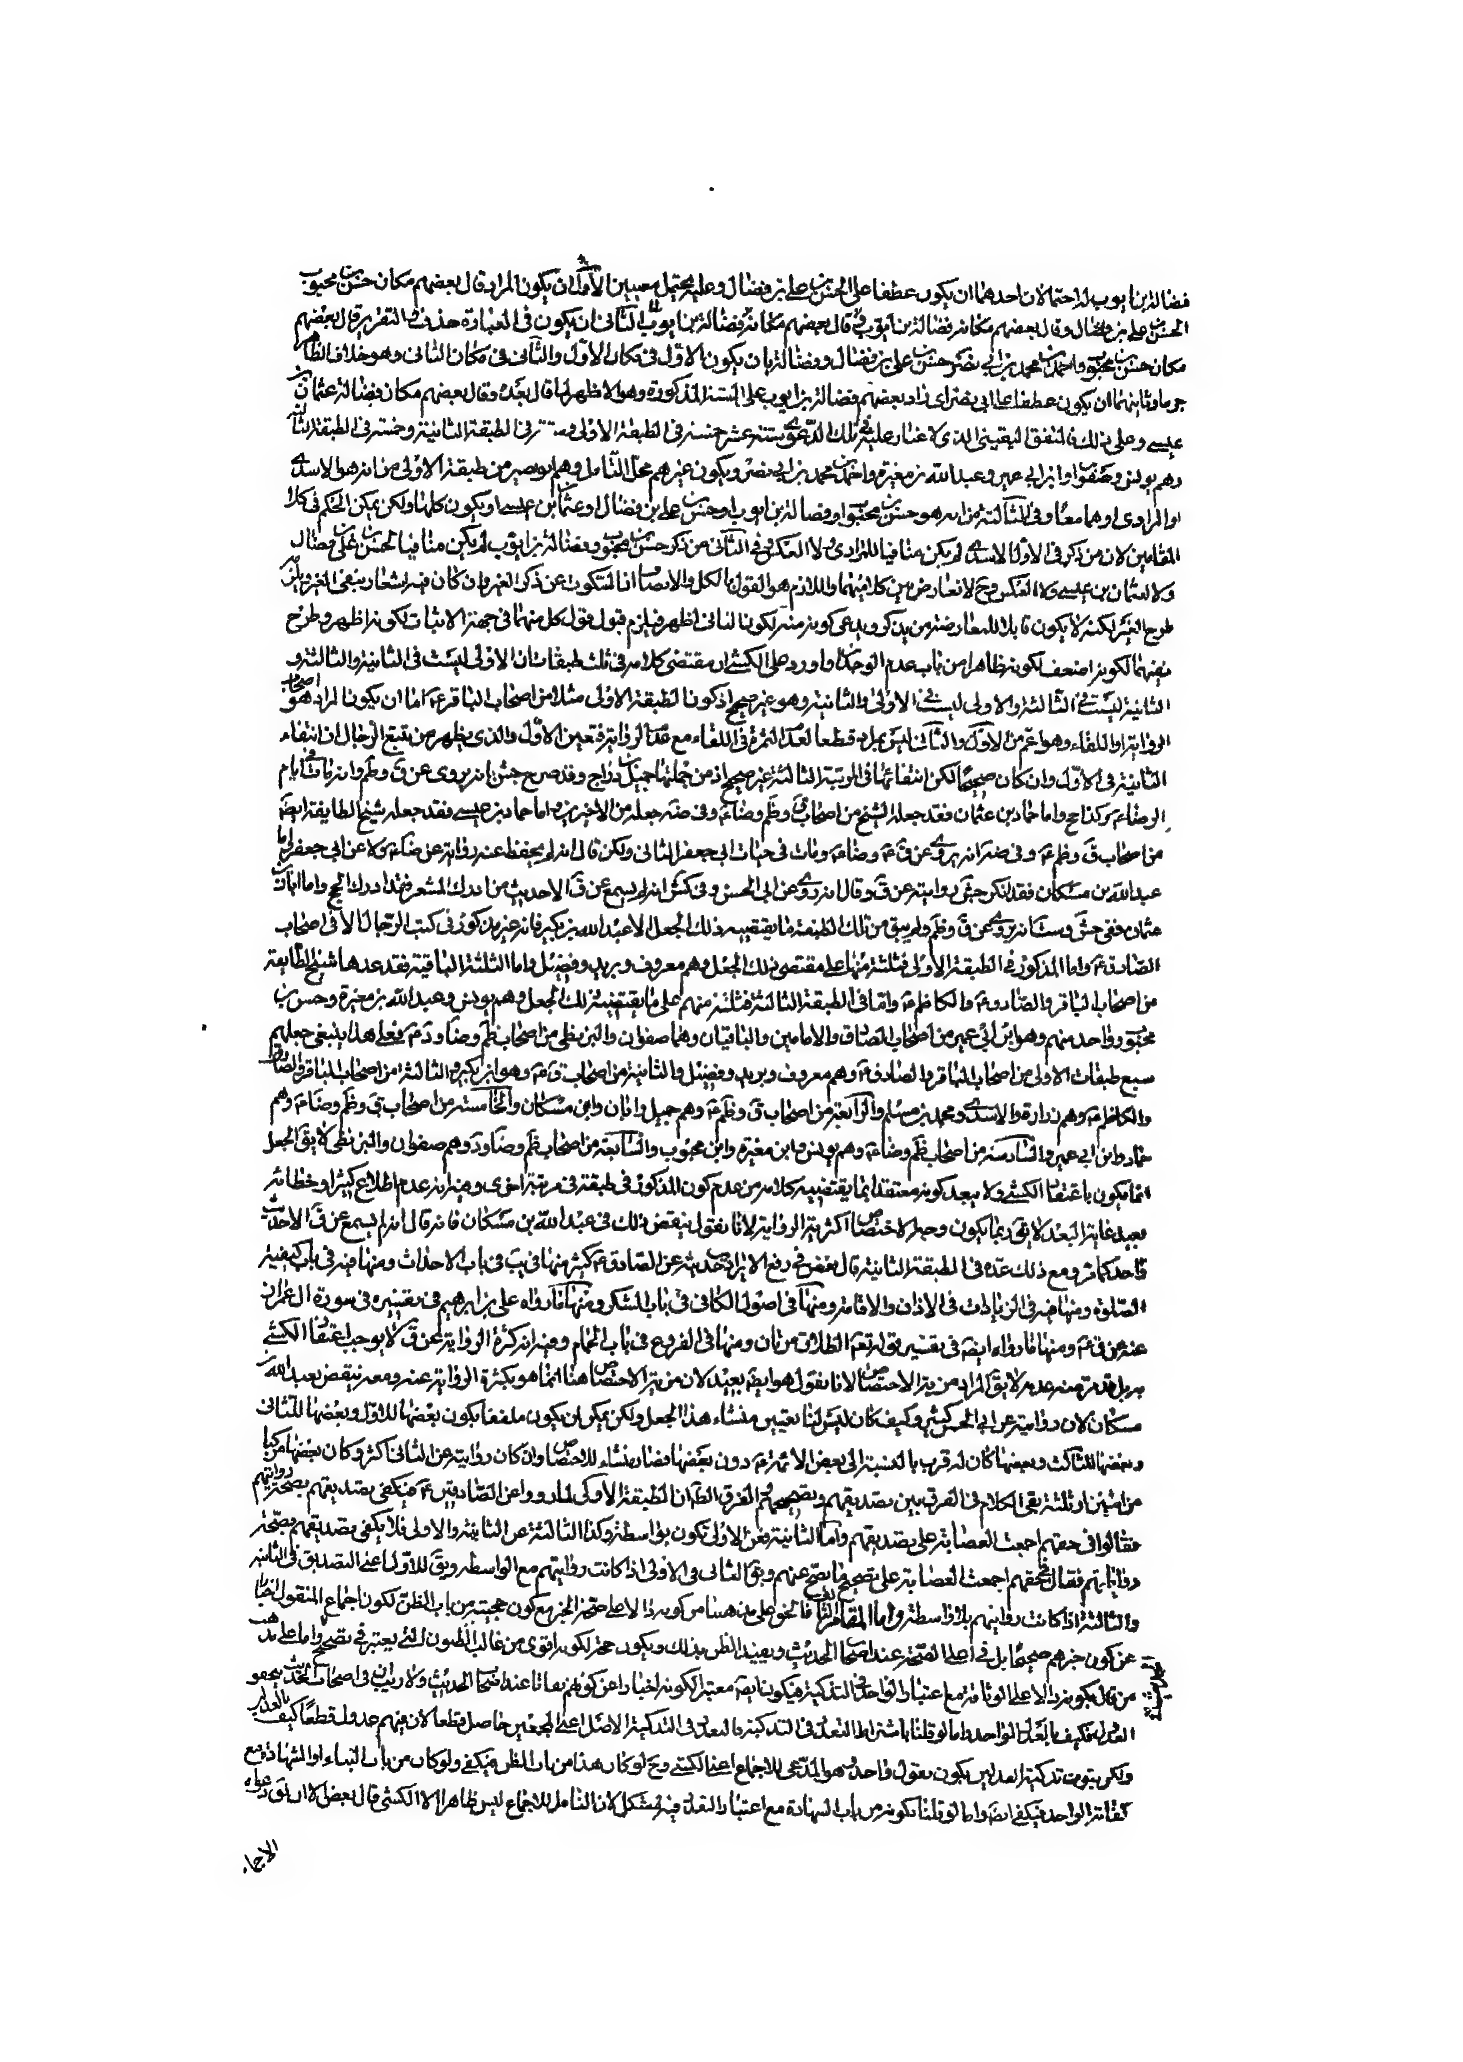 فضالة بن ايوب له احتمالان احدهما ان يكون عطفا على الحسن بن علي بن فضال وعليه يحتمل معنيين الاول ان يكون المراد قال بعضهم مكان حسن بن محبوب
الحسن بن علي بن فضال وقال بعضهم مكانه فضالة بن ايوب قال بعضهم مكانه فضالة بن ايوب الثاني ان يكون في العبارة حذف التقدير قال بعضهم
مكان حسن بن محبوب واحمد بن محمد بن ابي نصر حسن بن علي بن فضال وفضالة بان يكون الاول في مكان الاول والثاني في مكان الثاني وهو خلاف الظاهر
جرما وثانيهما ان يكون عطفا على ابي نصر اي زاد بعضهم فضالة بن ايوب على الستة المذكورة وهو الاظهر لما قال بعده وقال بعضهم مكان فضالة عثمان بن
عيسى وعلى ذلك فالمتفق اليقيني الذي لا غبار عليه في تلك الدعوى ستة عشر خمسة في الطبقة الاولى وستة في الطبقة الثانية وخمسة في الطبقة الثالثة
وهم يونس وصفوان وابن ابي عمير وعبد الله بن مغيرة واحمد بن محمد بن ابي نصر ويكون غيرهم محل التامل وهم ابو بصير من طبقة الاولى من انه هو الاسدي
او المرادي او هما معا وفي الثالثة من انه هو حسن بن محبوب او فضالة بن ايوب او حسن بن علي بن فضال او عثمان بن عيسى او يكون كلهما ولكن يمكن الحكم في كلا
المقامين لان من ذكر في الاول الاسدي لم يكن منافيا للمرادي ولا العكس وفي الثاني من ذكر حسن بن محبوب وفضالة بن ايوب لم يكن منافيا لحسن بن علي فضال
ولا لعثمان بن عيسى ولا العكس وح لا تعارض بين كلاميهما واللازم هو القول بالكل والانصاف ان السكوت عن ذكر الغير وان كان فيه اشعار بنفي الغير
طرح الغير لكنه لا يكون قابلا للمعارضة من يذكر ويدعي كونه منه لكون الثاني اظهر فيلزم قبول قول كل منهما في جهة الاثبات لكونه اظهر وطرح
نفيهما لكونه اضعف لكونه ظاهرا من باب عدم الوجدان واورد على الكشي ان مقتضى كلامه في ثلث طبقات ان الاولى ليست في الثانية والثالثة و
الثانية ليست في الثالثة والاولى ليست في الاولى والثانية وهو غير صحيح اذ كون الطبقة الاولى مثلا من اصحاب الباقر ع اما ان يكون المراد هو اصحاب
الرواية او اللقاء وهو اعم من الاول والثاني ليس بمراد قطعا لعدم الثمرة في اللقاء مع عدم الرواية فتعين الاول والذي يظهر من تتبع الرجال ان انتفاء
الثانية في الاول وان كان صحيحا لكن انتفائها في المرتبة الثالثة غير صحيح اذ من جملتها جميل بن دراج وقد صرح جش بانه يروي عن ق وظم وانه مات في ايام
الرضا ع وكذا ح واما حماد بن عثمان فقد جعله الشيخ من اصحاب ق وظم وضا ع وفي ضه جعله من الاخيرين واما حماد بن عيسى فقد جعله شيخ الطايفة ايضا
من اصحاب ق وظم ع وفي ضه انه يروي عن ق ع وضا ع ومات في حيات ابي جعفر الثاني ولكن قال انه لم يحفظ عنه رواية عن ضا ع ولا عن ابي جعفر واما
عبد الله بن مسكان فقد انكر جش روايته عن ق وقال انه روى عن ابي الحسن وفي كش انه لم يسمع عن ق الا حديث من ادرك المشعر فقد ادرك الحج واما ابان بن
عثمان ففي جش وست انه يروي عن ق وظم ولم يبق من تلك الطبقة ما يقتضيه ذلك الجعل الا عبد الله بن بكير فانه غير مذكور في كتب الرجال الا في اصحاب
الصادق ع واما المذكور في الطبقة الاولى فثلثة منها على مقتضى ذلك الجعل وهم معروف وبريد وفضيل واما الثلثة الباقية فقد عدها شيخ الطايفة
من اصحاب الباقر والصادق ع والكاظم ع واما في الطبقة الثالثة فثلثة منهم على ما يقتضيه ذلك الجعل وهم يونس وعبد الله بن مغيرة وحسن بن
محبوب وواحد منهم وهو ابن ابي عمير من اصحاب الصادق والامامين والباقيان وهما صفوان والبزنطي من اصحاب ظم وضا ود ع فعلى هذا ينبغي جعلهم
سبع طبقات الاولى من اصحاب الباقر والصادق ع وهم معروف وبريد وفضيل والثانية من اصحاب ق ع وهو ابن بكير والثالثة من اصحاب الباقر والصادق
والكاظم ع وهم زرارة والاسدي ومحمد بن مسلم والرابعة من اصحاب ق وظم ع وهم جميل وابان وابن مسكان والخامسة من اصحاب ق وظم وضا ع وهم
حماد وابن ابي عمير والسادسة من اصحاب ظم وضا ع وهم يونس وابن مغيرة وابن محبوب والسابعة من اصحاب ظم وضا ود وهم صفوان والبزنطي لا يق الجعل
انما يكون باعتقاد الكشي ولا يبعد كونه معتقدا بما يقتضيه كلامه من عدم كون المذكور في طبقة في مرتبة اخرى وفيه انه عدم اطلاع كثيرا وخطائه
بعيد غاية البعد لا يق ربما يكون وجه الاختصاص اكثرية الرواية لانا نقول ينقض ذلك في عبد الله بن مسكان فانه قال انه لم يسمع عن ق الا حديث
واحد كما مر ومع ذلك عده في الطبقة الثانية قال بعض في دفع الايراد حديثه عن الصادق ع كثير منها في يب في باب الاحداث ومنها فيه في باب كيفية
الصلوة ومنها فيه في الزيادات في الاذان والاقامة ومنها في اصول الكافي في باب الشكر ومنها ما رواه علي بن ابراهيم في تفسيره في سورة ال عمران
عنه عن ق ع ومنها ما رواه ايضا في تفسير قوله تعالى الطلاق مرتان ومنها في الفروع في باب الحمام وفيه ان كثرة الرواية عن ق لا يوجب اعتقاد الكشي
بل قدمنا منه عدمه لا يق المراد من مزية الاختصاص لانا نقول هو ايضا بعيد لان مزية الاختصاص هنا انما هو بكثرة الرواية عنه ومعه ينقض بعبد الله بن
مسكان لان روايته عن ابي الحسن كثير وكيف كان ليس لنا تعيين منشاء هذا الجعل ولكن يمكن ان يكون ملفقا يكون بعضها للاول وبعضها للثاني
وبعضها للثالث وبعضها كان له قرب بالنسبة الى بعض الائمة ع دون بعضها فصار منشاء للاختصاص وان كان روايته عن الثاني اكثر وكان بعضها مركبا
من اثنين او ثلثة بقي الكلام في الفرق بين تصديقهم وتصحيحهم الفرق الظاهر ان الطبقة الاولى لما رووا عن الصادقين ع فيكفي تصديقهم بصحة روايتهم
فقالوا في حقهم اجمعت العصابة على تصديقهم واما الثانية فعن الاولى تكون بواسطة وكذا الثالثة عن الثانية والاولى فلا يكفي تصديقهم بصحة
رواياتهم فقال في حقهم اجمعت العصابة على تصحيح ما يصح عنهم وبق الثاني في الاولى اذا كانت روايتهم مع الواسطة وبق للاول اعني التصديق في الثانية
والثالثة اذا كانت روايتهم بلا واسطة واما المقام الثالث فالحق على مذهبنا من كونه دالا على صحة الخبر مع كون حجيته من باب الظن لكون اجماع المنقول اخبارا
عن كون خبرهم صحيحا بل في اعلى الصحة عند اصحاب الحديث ويفيد الظن بذلك ويكون حجة لكونه اقوى من غالب الظنون التي يعتبر في تصحيح واما على مذهب
من قال بكونه دالا على الوثاقة مع اعتبار الواحد في التذكية فيكون ايضا معتبرا لكونه اخبارا عن كونهم ثقاتا عند اصحاب الحديث ولا ريب ان في اصحاب الحديث يحقق
العدول فكيف بالعدل الواحد واما لو قلنا باشتراط التعدد في التذكية فالتعدد في التذكية الاصل اعني المجمعين حاصل قطعا لان فيهم عدول قطعا كيف بالعدلين
ولكن ثبوت تذكية العدلين يكون بقول واحد وهو المدعي للاجماع اعني الكشي وح لو كان هذا من باب الظن فيكفي ولو كان من باب النباء او الشهادة مع
كفاية الواحد فيكفي ايضا واما لو قلنا بكونه من باب الشهادة مع اعتبار التعدد فيه فمشكل لان الناقل للاجماع ليس ظاهرا الا الكشي قال بعض الا ان يق دعواه
الاجماع